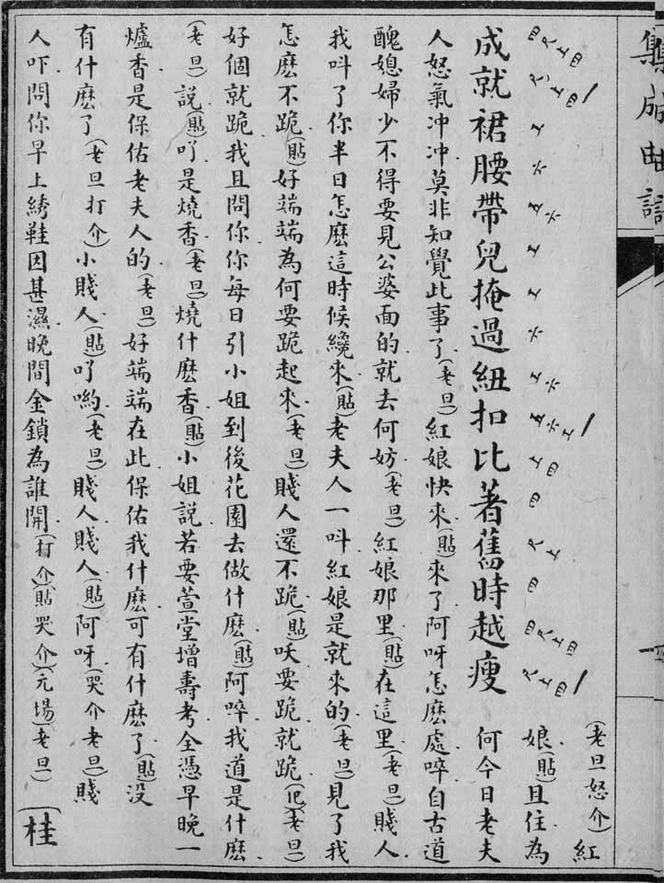 集成曲譜
成就裙腰帶兒掩過紐扣比著舊時越瘦
(老旦怒介)紅
娘(貼)且住為
何今日老夫
人怒氣冲冲莫非知覺此事了(老旦)紅娘快來(貼)來了阿呀怎麽處啐自古道
醜媳婦少不得要見公婆面的就去何妨(老旦)紅娘那里(貼)在這里(老旦)賤人
我呌了你半日怎麽這時候纔來(貼)老夫人一呌紅娘是就來的(老旦)見了我
怎麽不跪(貼)好端端為何要跪起來(老旦)賤人還不跪(貼)呋要跪就跪(老旦)
好個就跪我且問你你每日引小姐到後花園去做什麽(貼)阿啐我道是什麽
(老旦)說(貼)吖是燒香(老旦)燒什麽香(貼)小姐說若要萱堂增壽考全憑早晚一
爐香是保佑老夫人的(老旦)好端端在此保佑我什麽可有什麽了(貼)没
有什麽了(老旦打介)小賤人(貼)吖喲(老旦)賤人賤人(貼)阿呀(哭介老旦)賤
人吓問你早上綉鞋因甚濕晚間金鎖為誰開(打介)(貼哭介)元場(老旦)
桂